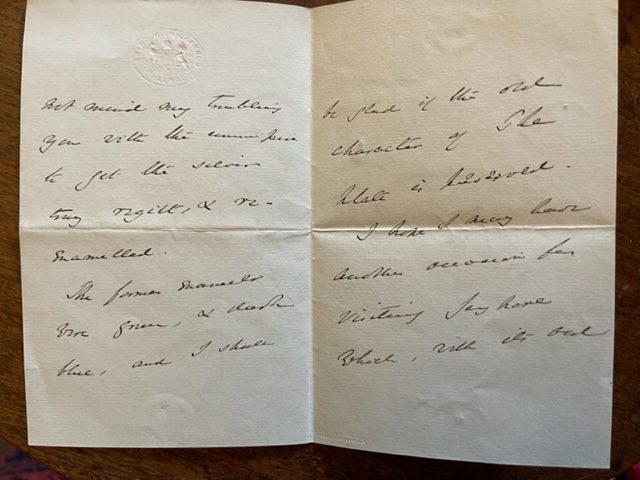 not mind my troubling
you with the commission
to get the silver
tray right, & re-
enamelled.
The former enamels
were green, & dark
blue, and I shall
be glad if the old
character of the
plate is preserved.
I hope I may have
another occasion for
visiting
which, with its old